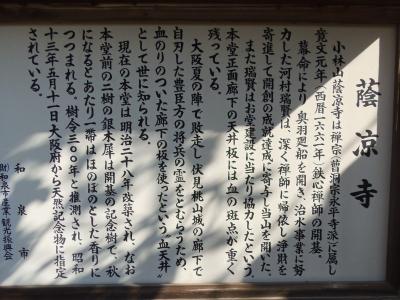 蔭凉寺
小林山蔭凉寺は禅宗(曹洞宗永平寺派)に属し
寛文元年(西暦一六六一年)鉄心禅師の開基、
幕命により奥羽廻船を開き、治水事業に努
力した河村瑞賢は、深く禅師に帰依し浄財を
寄進して開創の成就達成に寄与し当山を開いた。
また瑞賢は本堂建設に当たり協力したという。
本堂正面廊下の天井板には血の斑点が重く
残っている。
大阪夏の陣で敗走し伏見桃山城の廊下で
自刃した豊臣方の将兵の霊をとむらうため、
血のりのついた廊下の板を使ったという"血天井"
として世に知られる。
現在の本堂は明治二十八年改築され、なお
本堂前の二樹の銀木犀は開基の記念樹で、秋
になるとあたり一帯はほのぼのとした香りに
つつまれる。樹令三〇〇年と推測され、昭和
十三年五月十一日大阪府から天然記念物に指定
されている。
和泉市
(財)和泉市産業・観光振興会